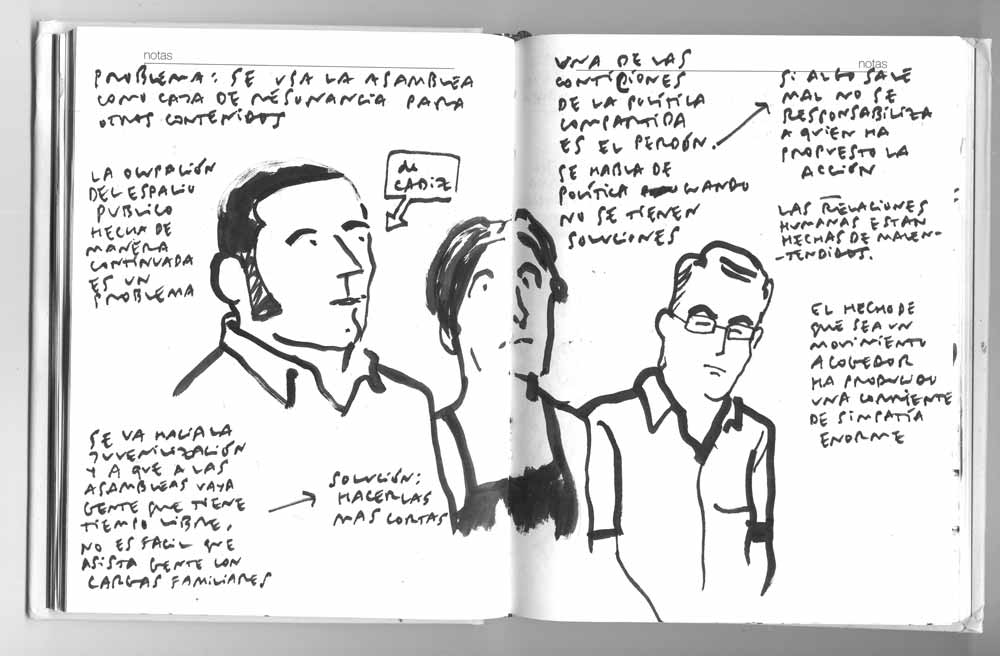 notas
PROBLEMA: SE USA LA ASAMBLEA
COMO CAJA DE RESONANCIA PARA
OTROS CONTENIDOS
LA OCUPACIÓN
DEL ESPACIO
PUBLICO
HECHA DE
MANERA
CONTINUADA
ES UN
PROBLEMA
de
CADIZ
SE VA HACIA LA
JUVENILIZACIÓN
Y A QUE A LAS
ASAMBLEAS VAYA
GENTE QUE TIENE
TIEMPO LIBRE.
NO ES FACIL QUE
ASISTA GENTE CON
CARGAS FAMILIARES
SOLUCIÓN:
HACERLAS
MAS CORTAS
notas
UNA DE LAS
CONDICIONES
DE LA POLÍTICA
COMPARTIDA
ES EL PERDÓN.
SE HABLA DE
POLÍTICA CUANDO
NO SE TIENEN
SOLUCIONES
SI ALGO SALE
MAL NO SE
RESPONSABILIZA
A QUIEN HA
PROPUESTO LA
ACCIÓN
LAS RELACIONES
HUMANAS ESTAN
HECHAS DE MALEN-
-TENDIDOS.
EL HECHO DE
QUE SEA UN
MOVIMIENTO
ACOGEDOR
HA PRODUCIDO
UNA CORRIENTE
DE SIMPATÍA
ENORME